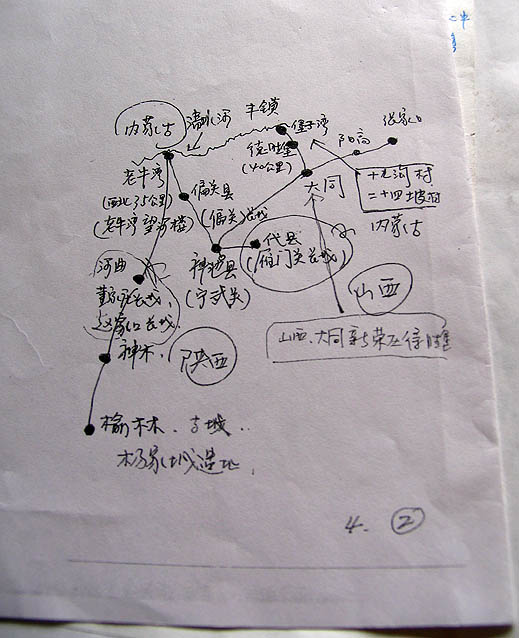 内蒙古
清水河
丰镇
堡子湾
得胜堡
(40公里)
阳高
张家口
老牛湾
(西北35公里)
(老牛湾望河楼)
偏关县
(偏关)长城
大同
二十四坡村
内蒙古
代县
(雁门关长城)
神池县
(宁武关)
河曲
山西
神木,
陕西
山西、大同新荣区得胜
榆林、古城..
杨家城遗址,
4. ②